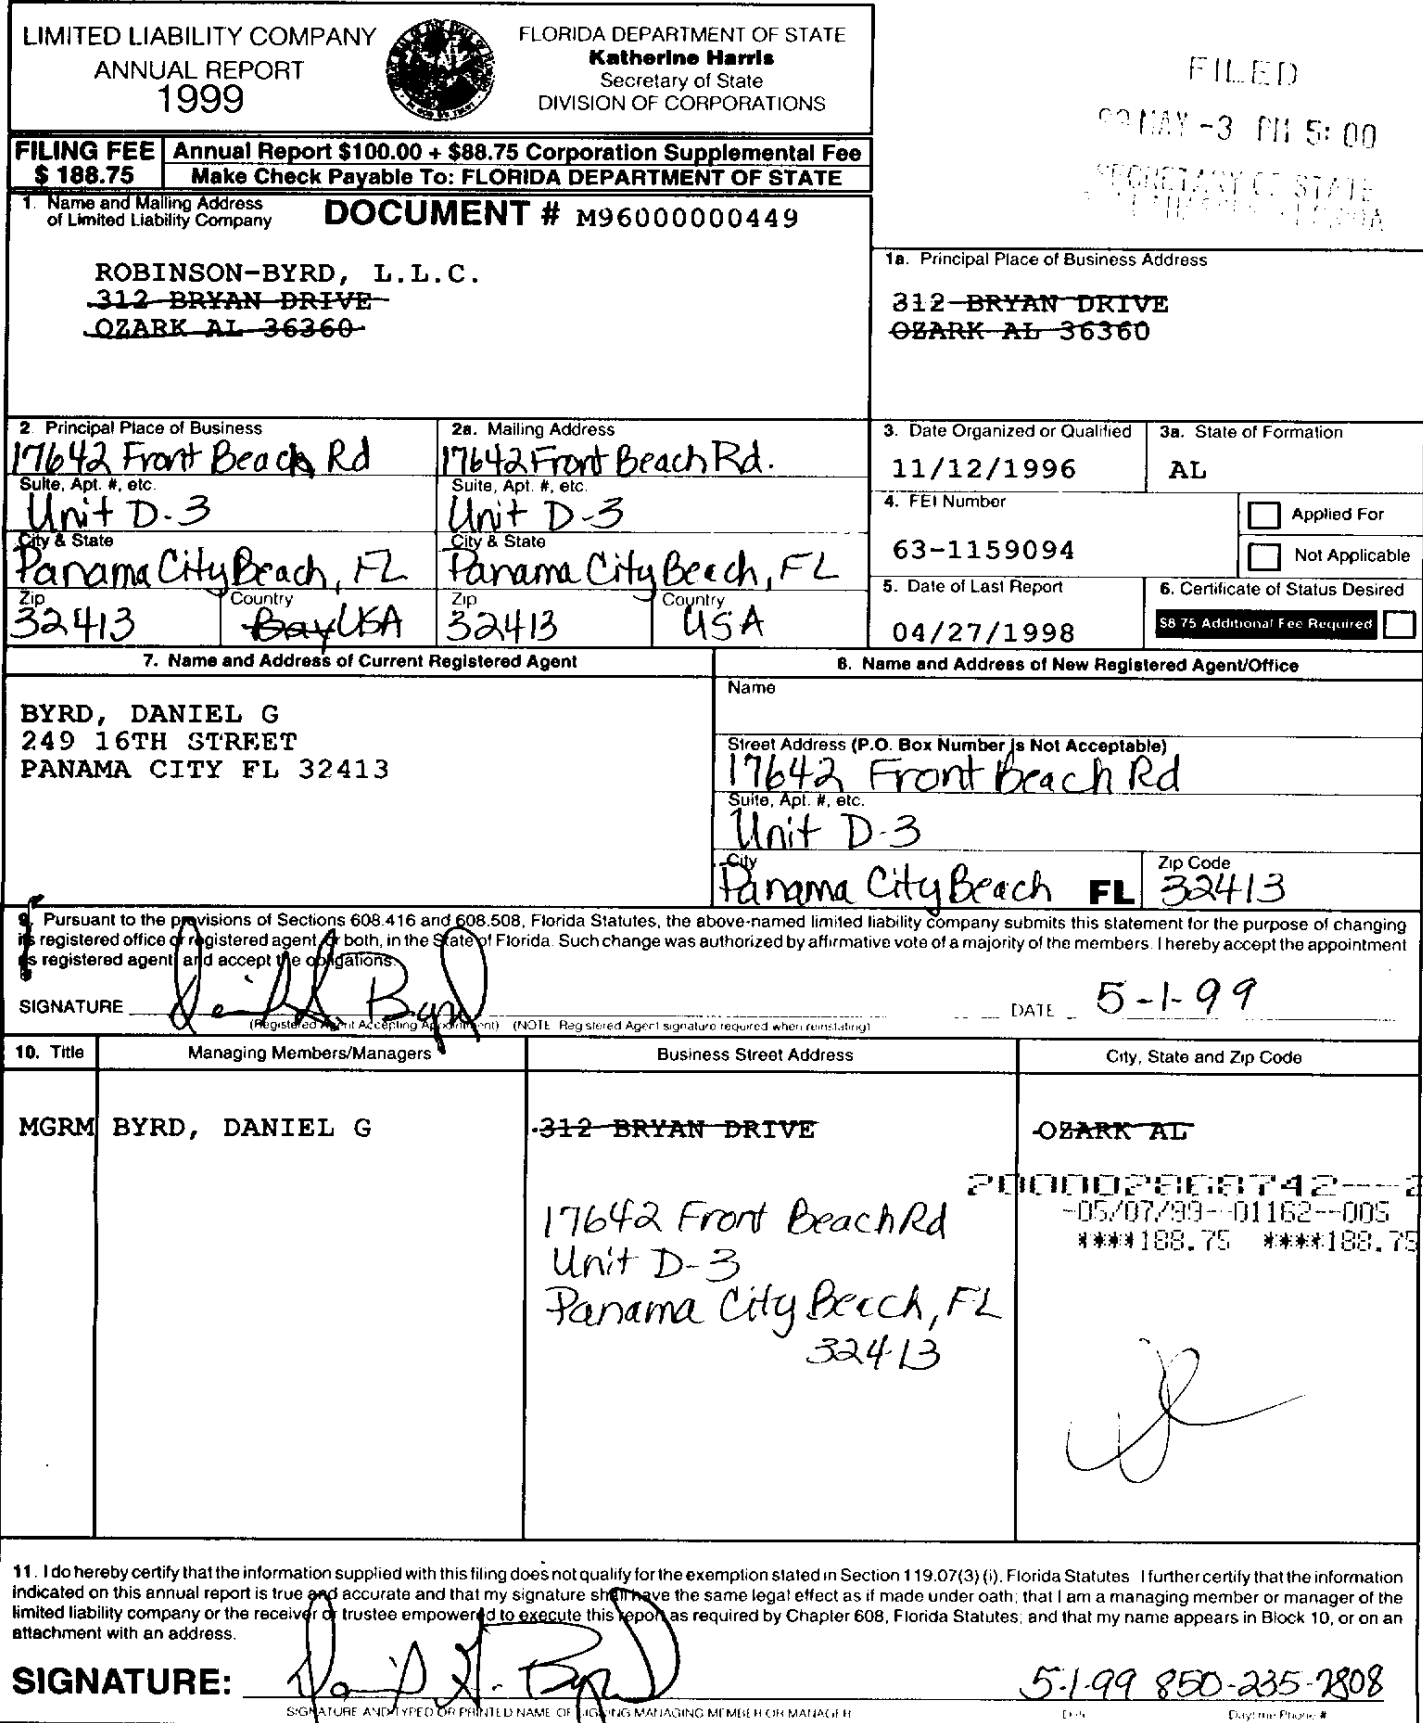 LIMITED LIABILITY COMPANY
ANNUAL REPORT
1999
FLORIDA DEPARTMENT OF STATE
Katherine Harris
Secretary of State
DIVISION OF CORPORATIONS
FILED
MAY -3 PM 5:00
SECRETARY OF STATE
FILING FEE
$ 188.75
Annual Report $100.00 + $88.75 Corporation Supplemental Fee
Make Check Payable To: FLORIDA DEPARTMENT OF STATE
1. Name and Mailing Address
of Limited Liability Company
DOCUMENT # M96000000449
ROBINSON-BYRD, L.L.C.
312 BRYAN DRIVE
OZARK AL 36360
1a. Principal Place of Business Address
312 BRYAN DRIVE
OZARK AL 36360
2. Principal Place of Business
17642 Front Beach Rd
Suite, Apt. #, etc.
Unit D-3
City & State
Panama City Beach, FL
Zip
32413
Country
Bay USA
2a. Mailing Address
17642 Front Beach Rd.
Suite, Apt. #, etc.
Unit D-3
City & State
Panama City Beach, FL
Zip
32413
Country
USA
3. Date Organized or Qualified
11/12/1996
3a. State of Formation
AL
4. FEI Number
63-1159094
Applied For
Not Applicable
5. Date of Last Report
04/27/1998
6. Certificate of Status Desired
$8.75 Additional Fee Required
7. Name and Address of Current Registered Agent
BYRD, DANIEL G
249 16TH STREET
PANAMA CITY FL 32413
8. Name and Address of New Registered Agent/Office
Name
Street Address (P.O. Box Number Is Not Acceptable)
17642 Front Beach Rd
Suite, Apt. #, etc.
Unit D-3
City
Panama City Beach FL
Zip Code
32413
9. Pursuant to the provisions of Sections 608.416 and 608.508, Florida Statutes, the above-named limited liability company submits this statement for the purpose of changing
its registered office or registered agent, or both, in the State of Florida. Such change was authorized by affirmative vote of a majority of the members. I hereby accept the appointment
as registered agent and accept the obligations.
SIGNATURE
DATE 5-1-99
(Registered Agent Accepting Appointment) (NOTE Registered Agent signature required when reinstating)
10. Title
Managing Members/Managers
Business Street Address
City, State and Zip Code
MGRM BYRD, DANIEL G
312 BRYAN DRIVE
OZARK AL
17642 Front Beach Rd
Unit D-3
Panama City Beach, FL
32413
200002868742---2
-05/07/99--01162--005
****188.75 ****188.75
11. I do hereby certify that the information supplied with this filing does not qualify for the exemption stated in Section 119.07(3) (i), Florida Statutes I further certify that the information
indicated on this annual report is true and accurate and that my signature shall have the same legal effect as if made under oath; that I am a managing member or manager of the
limited liability company or the receiver or trustee empowered to execute this report as required by Chapter 608, Florida Statutes; and that my name appears in Block 10, or on an
attachment with an address.
SIGNATURE: Daniel G. Byrd 5-1-99 850-235-2808
SIGNATURE AND TYPED OR PRINTED NAME OF SIGNING MANAGING MEMBER OR MANAGER
Date
Daytime Phone #